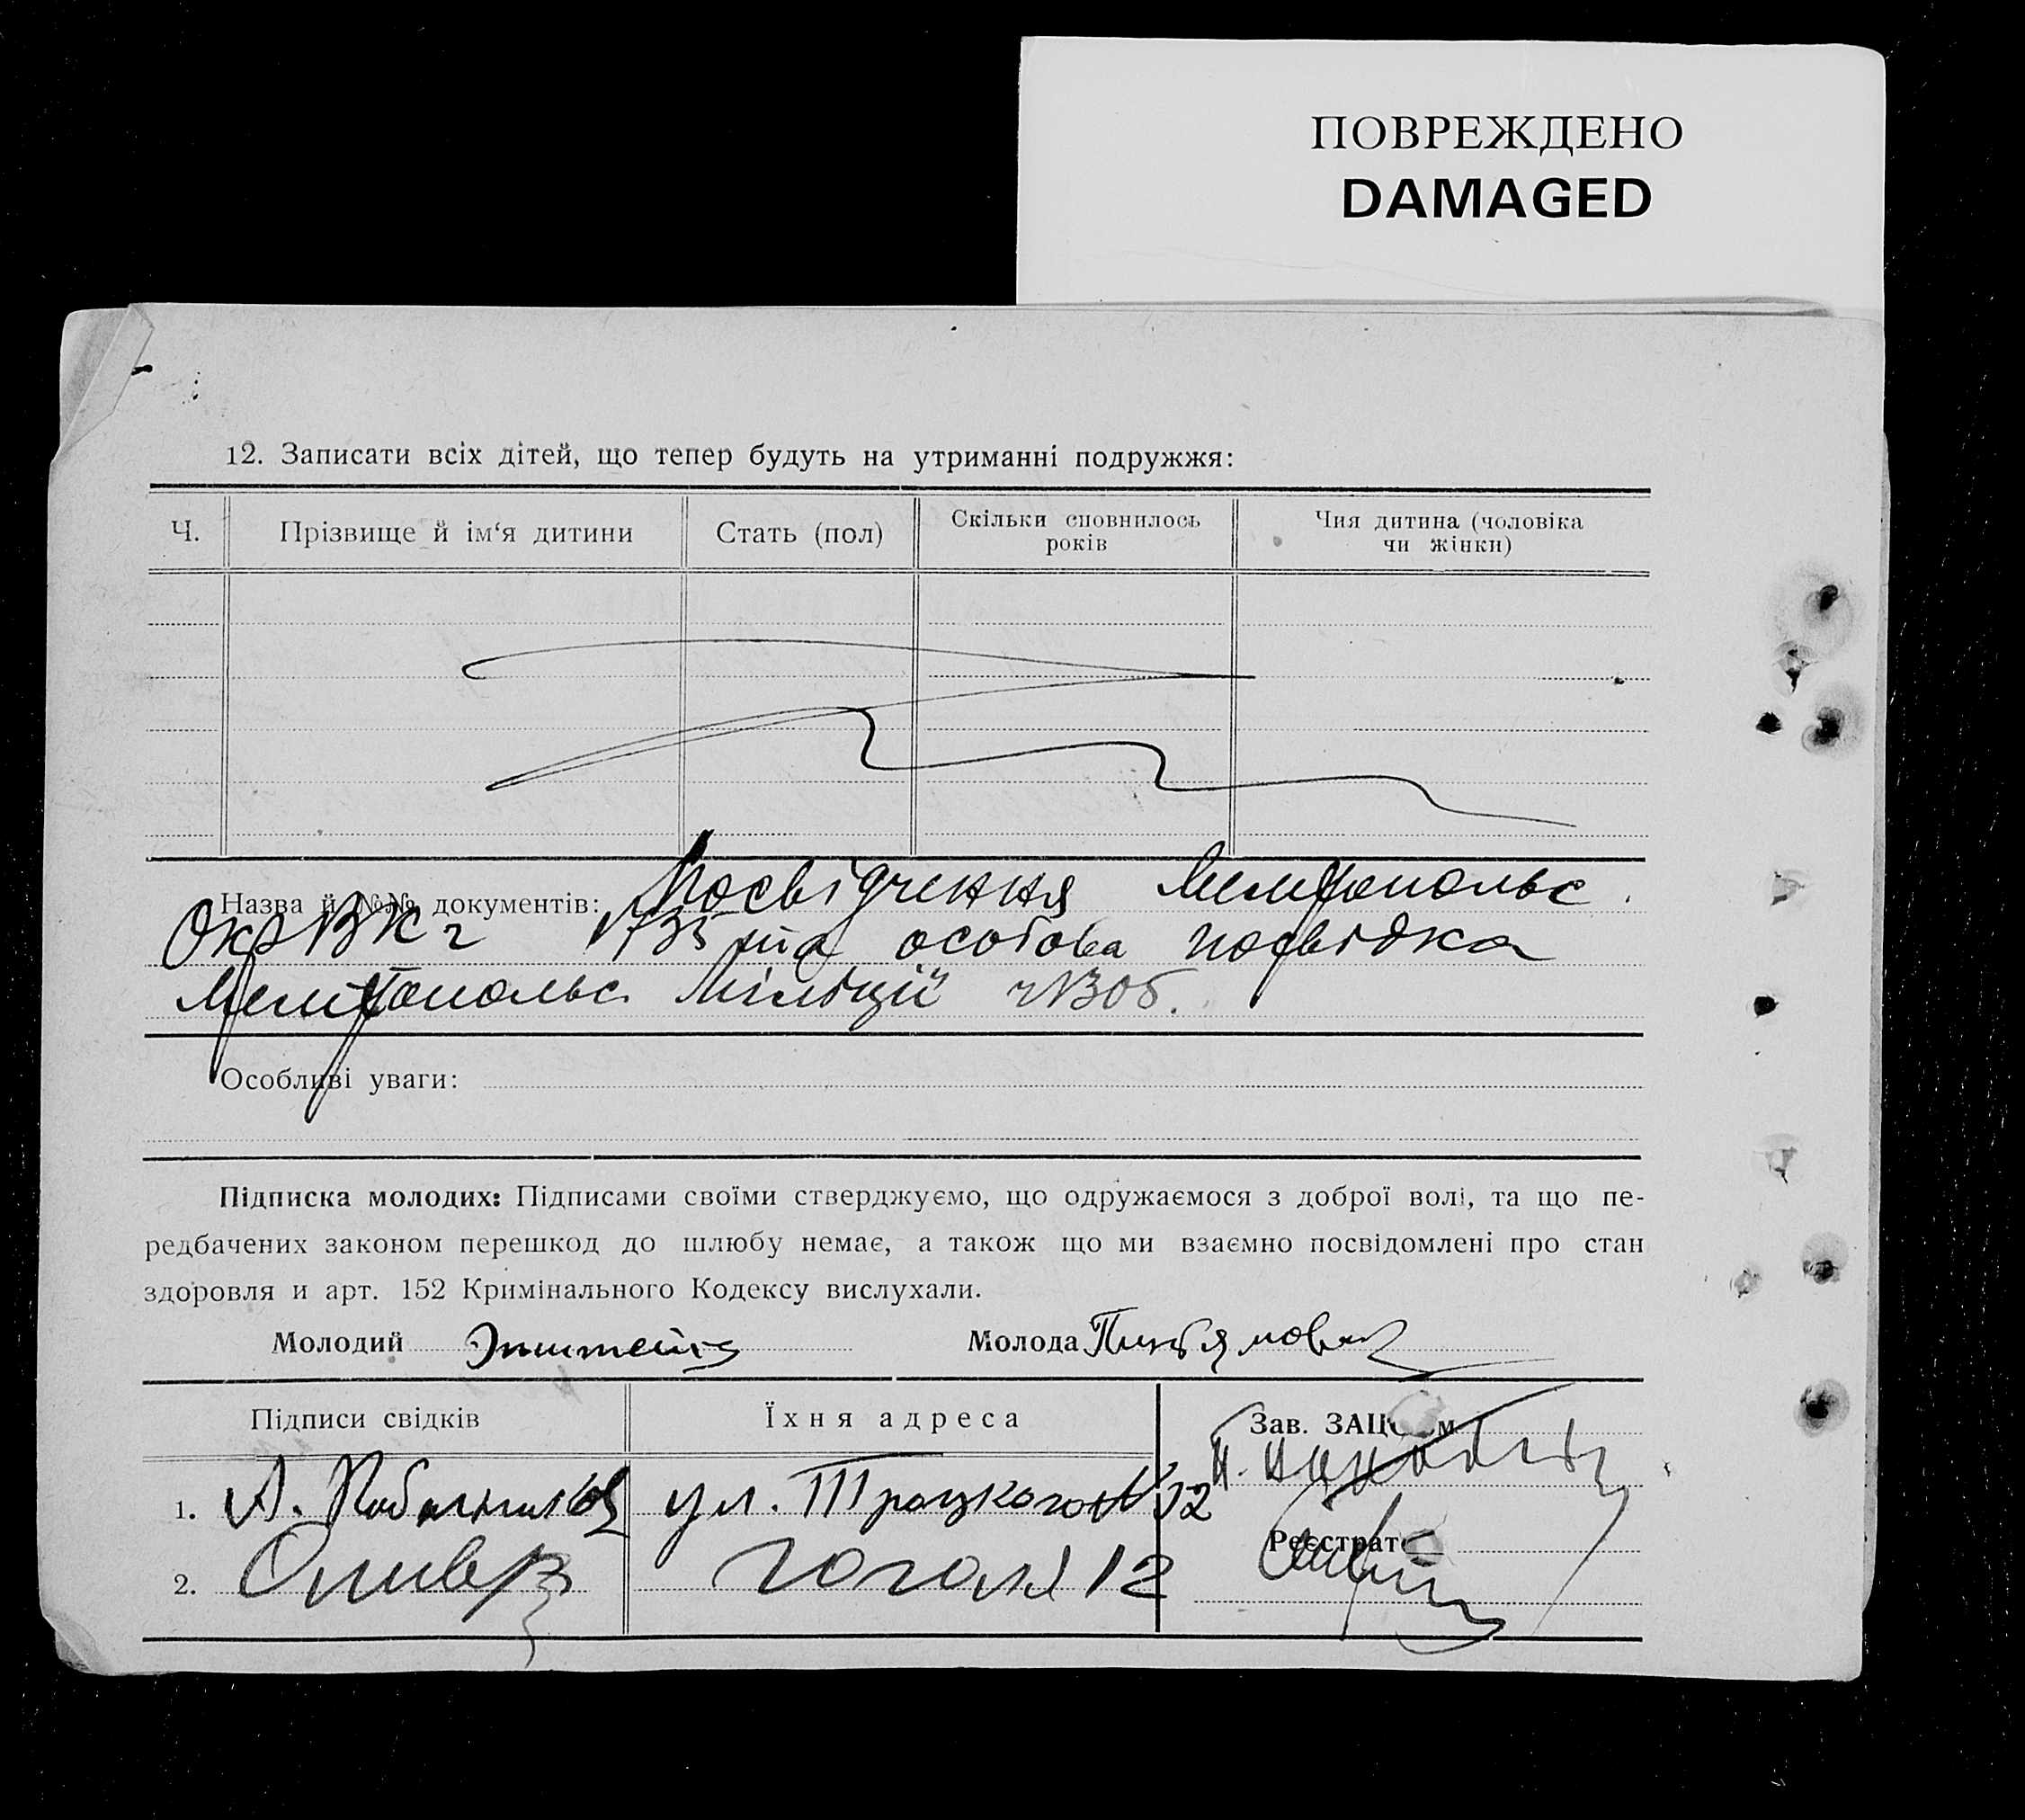 ПОВРЕЖДЕНО
DAMAGED
12. Записати всіх дітей, що тепер будуть на утриманні подружжя:
Ч. Прізвище й ім‘я дитини Стать (пол) Скільки сповнилось років Чия дитина (чоловіка чи жінки)
Назва й №№ документів: Посвідчення Мелітопольс.
ОкрВК ч та особова посвідка
Мелітопольс. Міліції
Особливі уваги:
Підписка молодих: Підписами своїми стверджуємо, що одружаємося з доброї волі, та що пе-
редбачених законом перешкод до шлюбу немає, а також що ми взаємно посвідомлені про стан
здоровля и арт. 152 Кримінального Кодексу вислухали.
Молодий Эпштейн Молода
Підписи свідків Їхня адреса Зав. ЗАЦ
1. А. ул. Троцкого № 32
2. Гоголя 12 Реєстрат